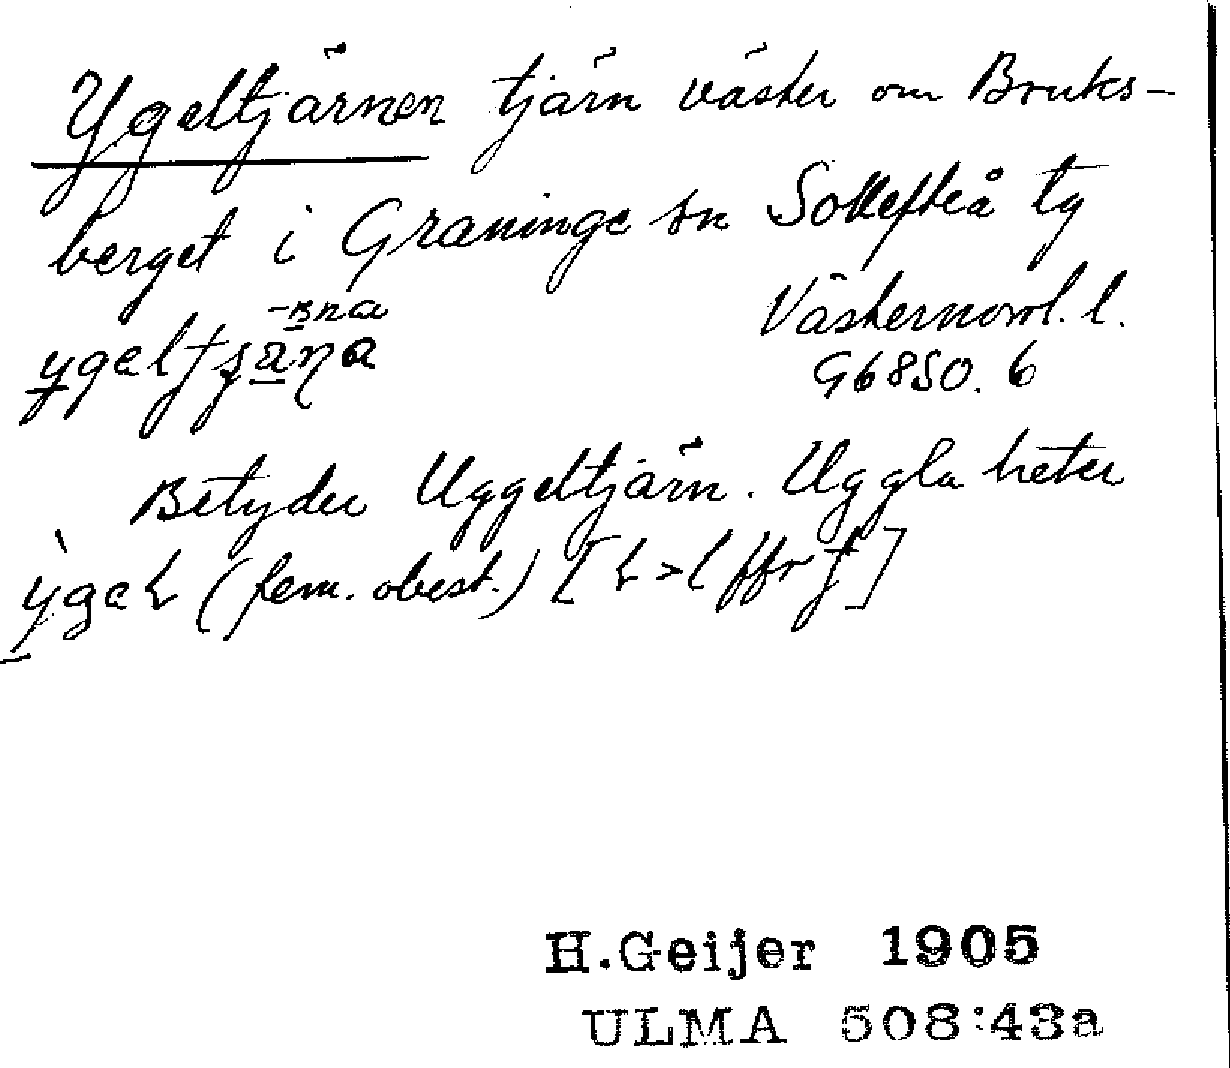 Ygeltjärnen tjärn väster om Bruks-
berget i Graninge sn Sollefteå tg
-ṇna Västernorrl. l.
ygeltʂäṇa G6850. 6
Betyder Uggeltjärn. Uggla heter
ỳgeɽ (fem. obest.) [ɽ>l ffr ƫ]
H.Geijer 1905
ULMA 508:43a